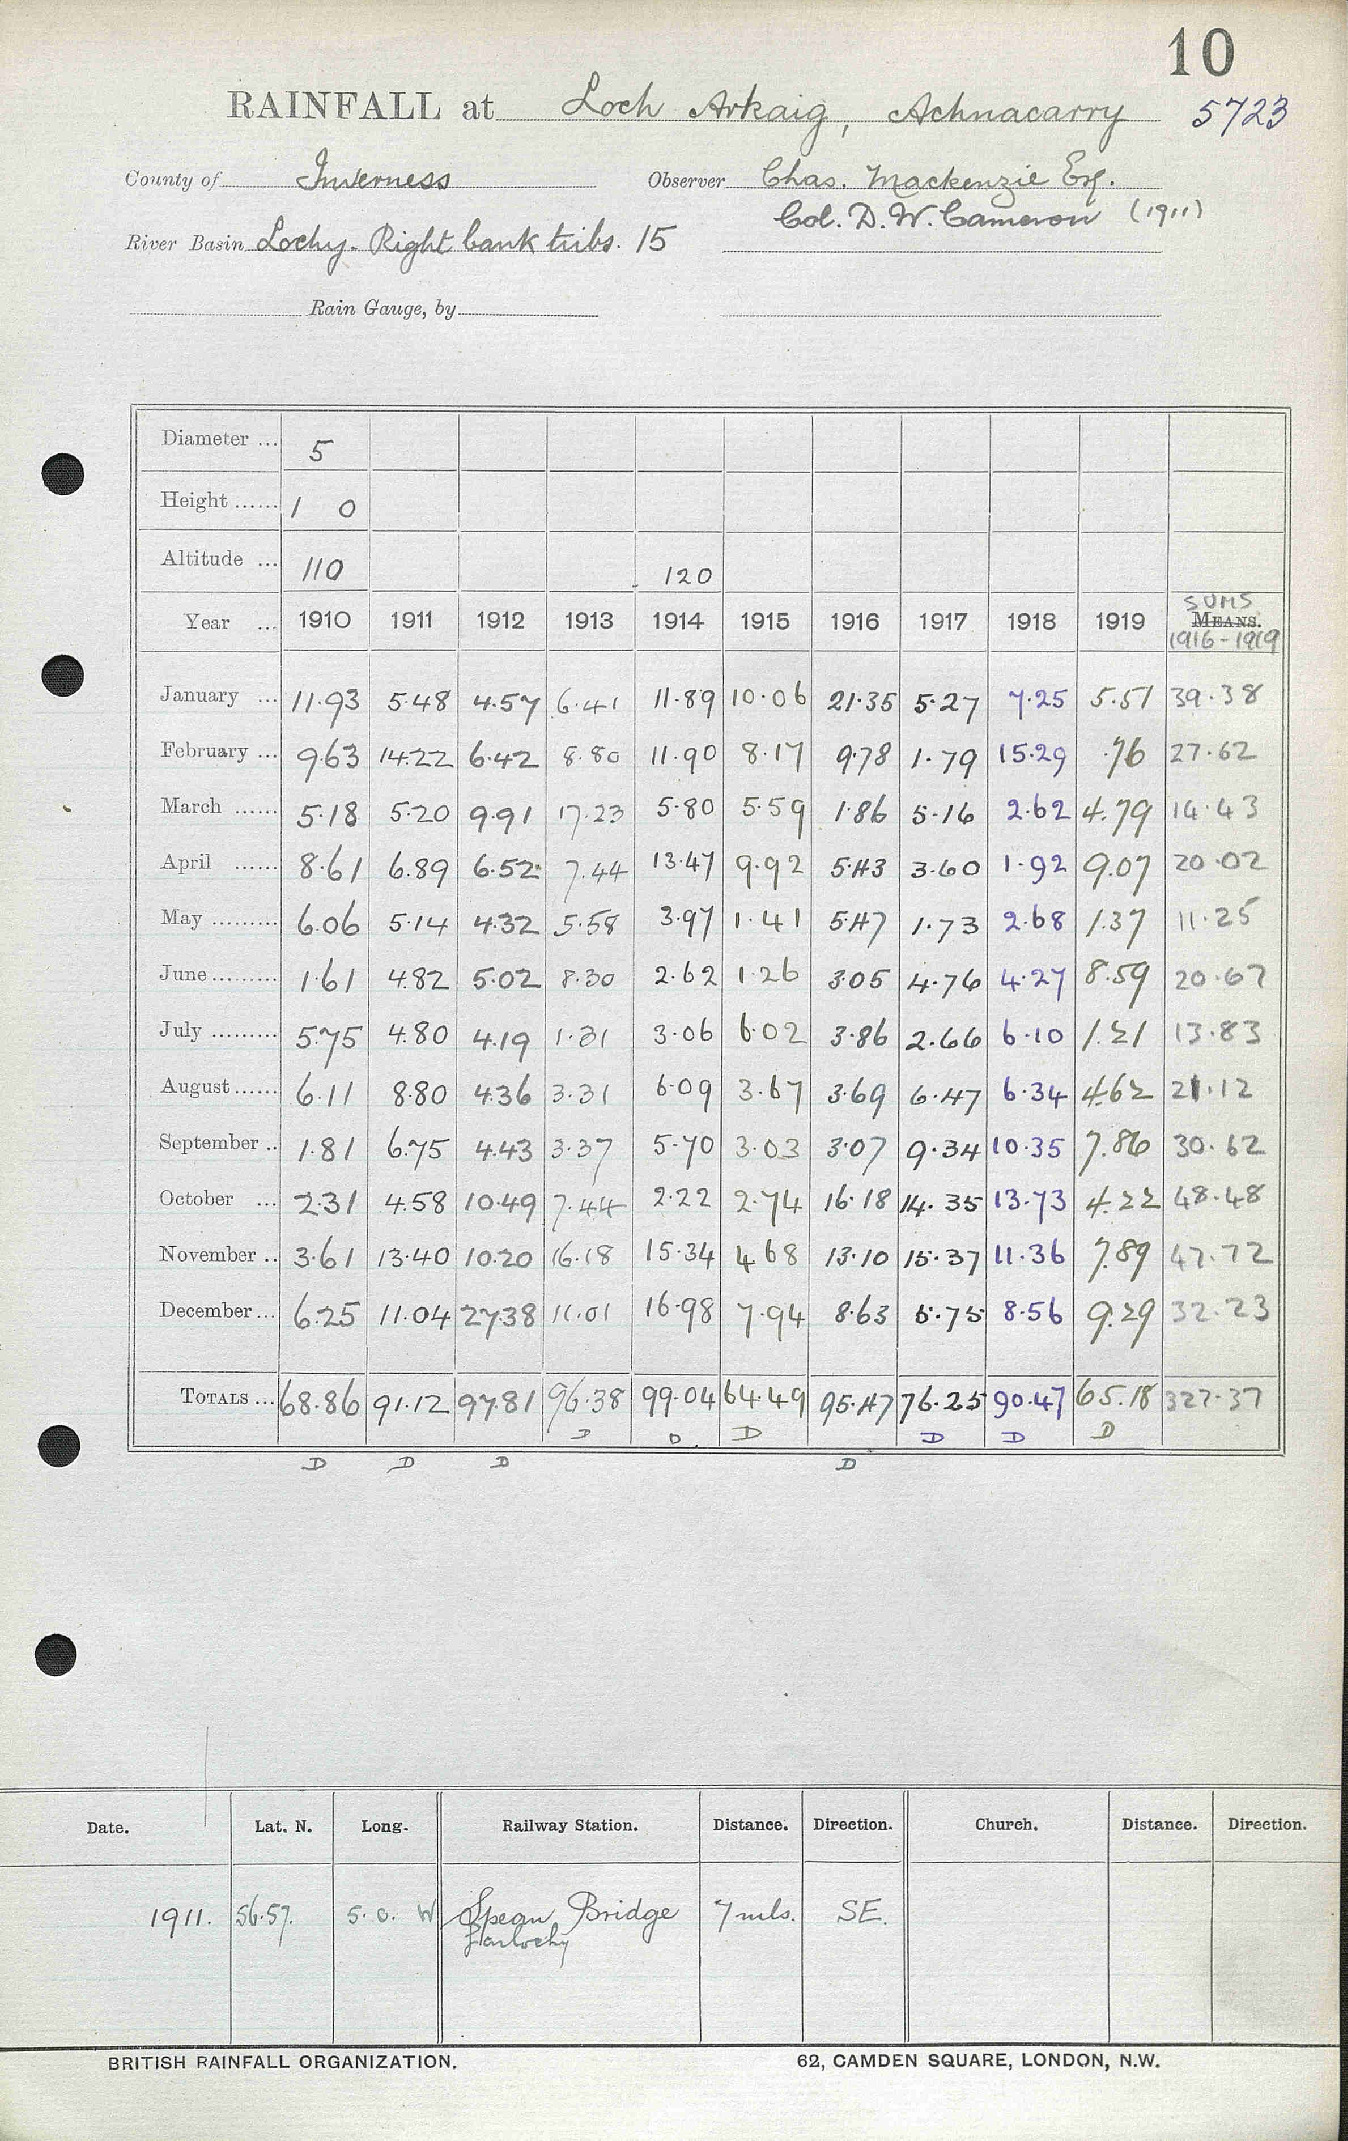 10
RAINFALL at Loch Arkaig, Achnacarry 5723
County of Inverness Observer Chas. Mackenzie Esq.
Col. D. W. Cameron (1911)
River Basin Lochy. Right bank tribs. 15
Rain Gauge, by
Diameter ... 5
Height ...... 1 0
Altitude ... 110 120
SUMS
Year ... 1910 1911 1912 1913 1914 1915 1916 1917 1918 1919 MEANS.
1916-1919
January ... 11.93 5.48 4.57 6.41 11.89 10.06 21.35 5.27 7.25 5.51 39.38
February ... 9.63 14.22 6.42 8.80 11.90 8.17 9.78 1.79 15.29 .76 27.62
March ...... 5.18 5.20 9.91 17.23 5.80 5.59 1.86 5.16 2.62 4.79 14.43
April ...... 8.61 6.89 6.52 7.44 13.47 9.92 5.43 3.60 1.92 9.07 20.02
May ......... 6.06 5.14 4.32 5.58 3.97 1.41 5.47 1.73 2.68 1.37 11.25
June ......... 1.61 4.82 5.02 8.30 2.62 1.26 3.05 4.76 4.27 8.59 20.67
July ......... 5.75 4.80 4.19 1.31 3.06 6.02 3.86 2.66 6.10 1.21 13.83
August ...... 6.11 8.80 4.36 3.31 6.09 3.67 3.69 6.47 6.34 4.62 21.12
September .. 1.81 6.75 4.43 3.37 5.70 3.03 3.07 9.34 10.35 7.86 30.62
October ... 2.31 4.58 10.49 7.44 2.22 2.74 16.18 14.35 13.73 4.22 48.48
November .. 3.61 13.40 10.20 16.18 15.34 4.68 13.10 15.37 11.36 7.89 47.72
December ... 6.25 11.04 27.38 11.01 16.98 7.94 8.63 5.75 8.56 9.29 32.23
TOTALS ... 68.86 91.12 97.81 96.38 99.04 64.49 95.47 76.25 90.47 65.18 327.37
D D D D D D
D D D D
Date. Lat. N. Long. Railway Station. Distance. Direction. Church. Distance. Direction.
1911. 56.57. 5. 0. W Spean Bridge 7 mls. SE.
BRITISH RAINFALL ORGANIZATION. 62, CAMDEN SQUARE, LONDON, N.W.